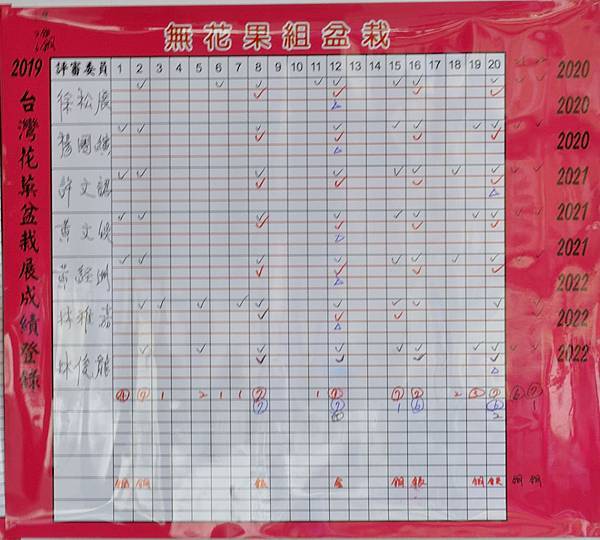 無花果組盆栽
2019 評審委員 1 2 3 4 5 6 7 8 9 10 11 12 13 14 15 16 17 18 19 20 2020
台灣花菓盆栽展成績登錄
徐松展
2020
楊國績
2020
許文認
2021
黃文俊
2021
黃經洲
2021
林雅嵩
2022
林俊龍
2022
2022
4 7 1 2 1 1 7 1 7 7 7 2 5 7 6 7
7 7 1 6 6 1
5 2
銅 銅 銀 金 銅 銀 銅 銀 銅 銅